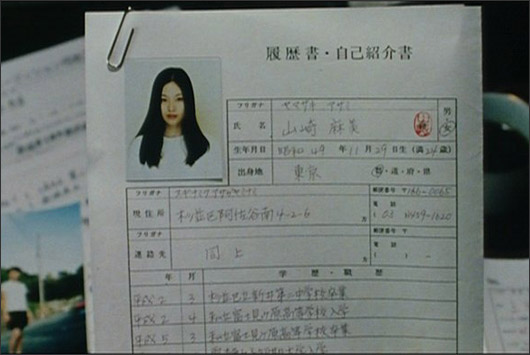 履歴書・自己紹介書
フリガナ ヤマザキ アサミ 男
氏名 山崎 麻美 女
生年月日 昭和49年11月29日生(満24歳)
出身地 東京 都・道・府・県
フリガナ スギナミクアサガヤミナミ 郵便番号 〒166-0065
現住所 杉並区阿佐谷南4-2-6 電話
フリガナ 郵便番号 〒
連絡先 同上 電話
年 月 学歴・職歴
平成2 3 杉並区立新井第二中学校卒業
平成2 4 私立富士見ヶ原高等学校入学
平成5 3 私立富士見ヶ原高等学校卒業